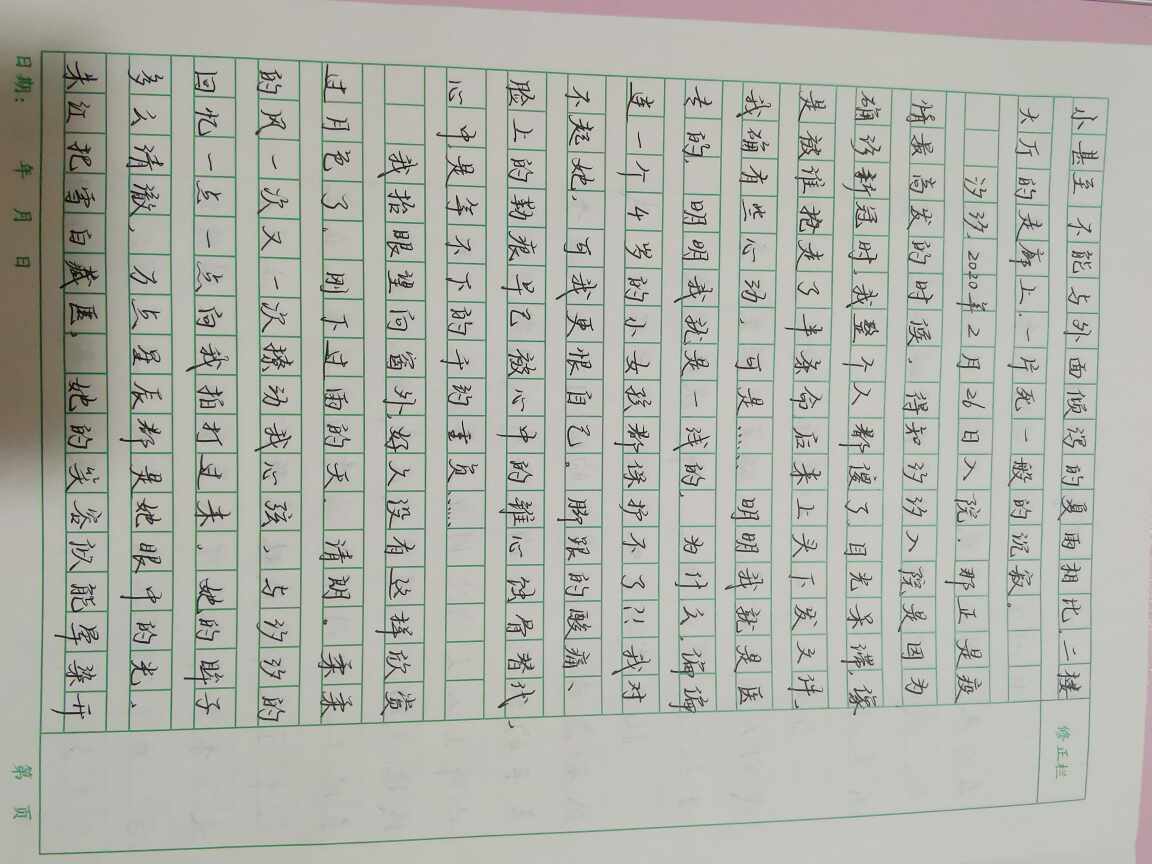 小甚至不能与外面倾泻的夏雨相比,二楼
大厅的走廊上,一片死一般的沉寂。
汐汐,2020年2月26日入院,那正是疫
情最高发的时候,得知汐汐入院是因为
确诊新冠时,我整个人都傻了,目光呆滞,像
是被谁抢走了半条命,后来上头下发文件,
我确有些心动,可是……明明我就是医
专的,明明我就是一线的,为什么,偏偏
连一个4岁的小女孩都保护不了?!我对
不起她,可我更恨自己。脚跟的酸痛、
脸上的勒痕早已被心中的锥心蚀骨替代,
心中是卸不下的千钧重负……
我抬眼望向窗外,好久没有这样欣赏
过月色了,刚下过雨的天,清朗。柔柔
的风一次又一次撩动我心弦,与汐汐的
回忆一点一点向我拍打过来,她的眸子
多么清澈,万点星辰都是她眼中的光,
朱红把雪白藏匿,她的笑容似能晕染开
修正栏
日期: 年 月 日
第 页